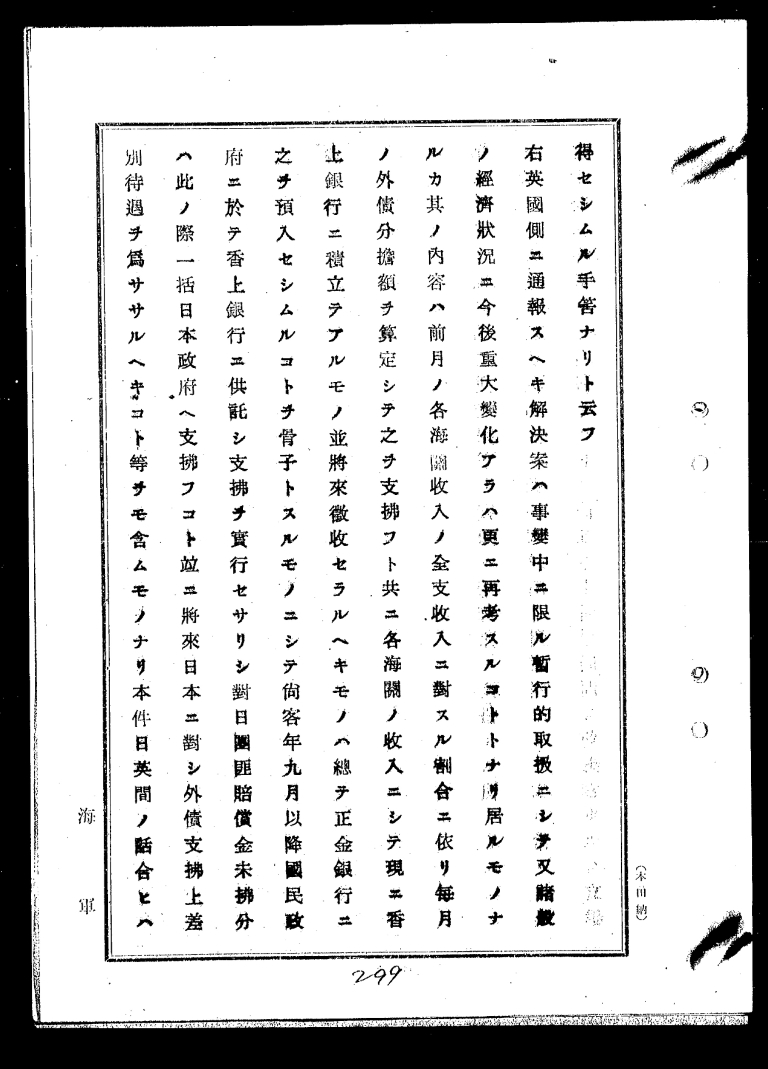 得セシムル手筈ナリト云フ
右英國側ニ通報スヘキ解決案ハ事變中ニ限ル暫行的取扱ニシテ又諸般
ノ經濟狀況ニ今後重大變化アラハ更ニ再考スルコトトナリ居ルモノナ
ルカ其ノ內容ハ前月ノ各海關收入ノ全支收入ニ對スル割合ニ依リ每月
ノ外債分擔額ヲ算定シテ之ヲ支拂フト共ニ各海關ノ收入ニシテ現ニ香
上銀行ニ積立テアルモノ並將來徵收セラルヘキモノハ總テ正金銀行ニ
之ヲ預入セシムルコトヲ骨子トスルモノニシテ尙客年九月以降國民政
府ニ於テ香上銀行ニ供託シ支拂ヲ實行セサリシ對日團匪賠償金未拂分
ハ此ノ際一括日本政府ヘ支拂フコト竝ニ將來日本ニ對シ外債支拂上差
別待遇ヲ爲ササルヘキコト等ヲモ含ムモノナリ本件日英間ノ話合ヒハ
海軍
299